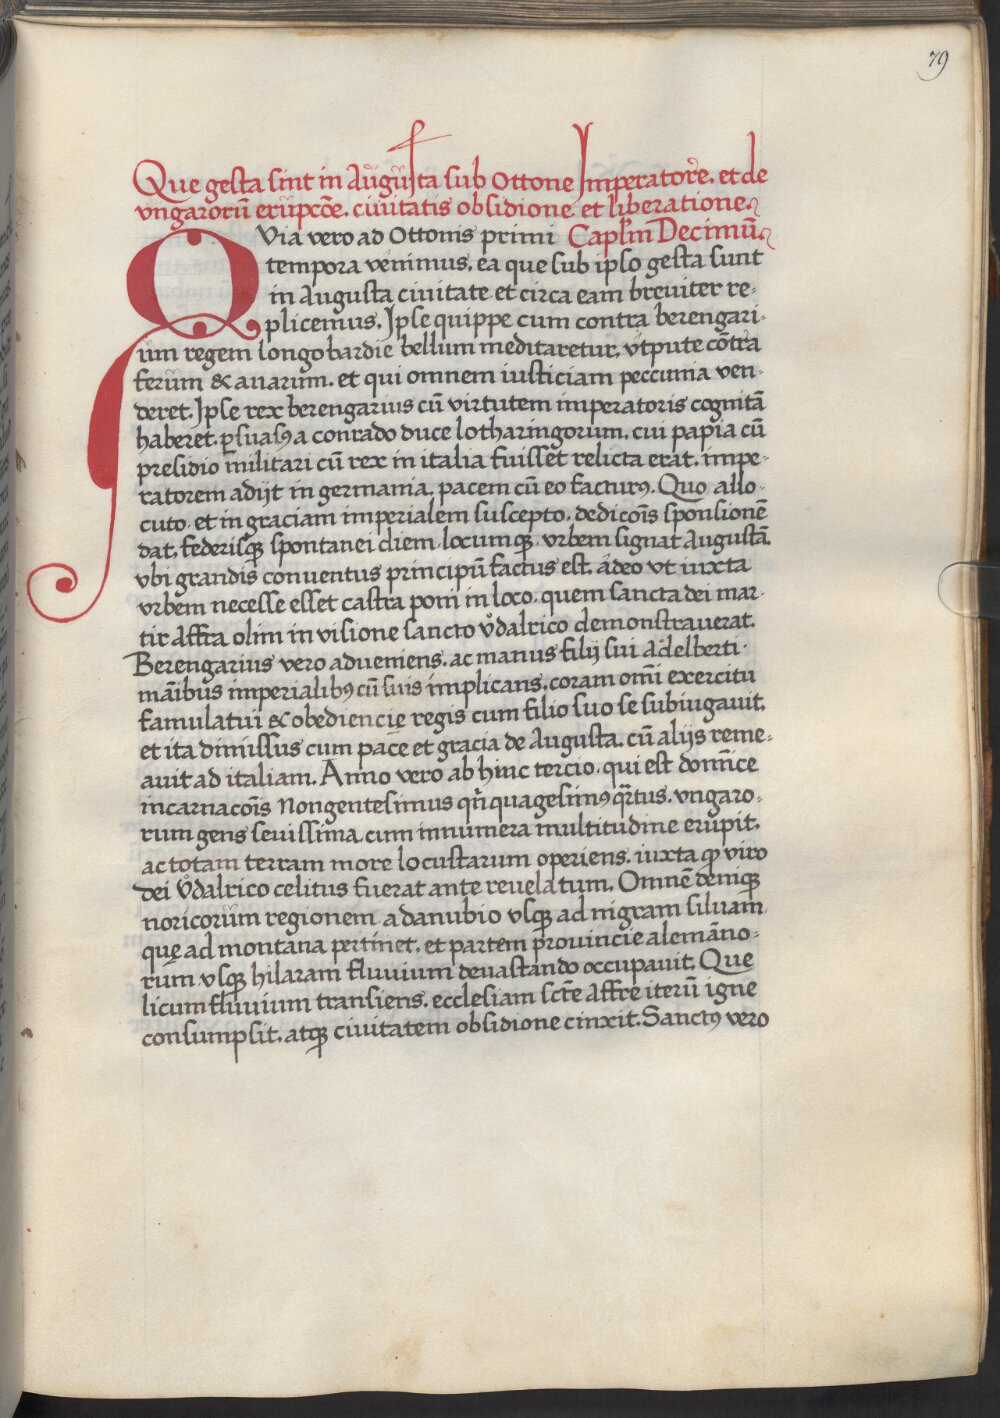 79
Que gesta sint in Augusta sub Ottone Imperatore. et de
vngarorũ erupcõe. ciuitatis obsidione et liberatione.
Quia vero ad Ottonis primi Caplm̃ Decimũ
tempora venimus, ea que sub ipso gesta sunt
in augusta ciuitate et circa eam breuiter re-
plicemus. Ipse quippe cum contra berengari-
um regem longobardie bellum meditaretur, vtpute cõtra
ferum & auarum. et qui omnem iusticiam peccunia ven-
deret. Ipse rex berengarius cũ virtutem imperatoris cognitã
haberet. ꝑsuasꝰ a conrado duce lotharingorum. cui papia cũ
presidio militari cũ rex in italia fuisset relicta erat. impe-
ratorem adijt in germania. pacem cũ eo facturꝰ. Quo allo-
cuto. et in graciam imperialem suscepto. dedicõis sponsionẽ
dat, federisqꝫ spontanei diem locumqꝫ vrbem signat Augustã.
vbi grandis conuentus principũ factus est. adeo vt iuxta
vrbem necesse esset castra poni in loco. quem sancta dei mar-
tir Affra olim in visione sancto vͦdalrico demonstrauerat.
Berengarius vero adueniens. ac manus filij sui Adelberti
mãibus imperialibꝰ cũ suis implicans. coram om̃i exercitu
famulatui & obediencię regis cum filio suo se subiugauit.
et ita dimissus cum pace et gracia de Augusta. cũ alijs reme-
auit ad italiam. Anno vero ab hinc tercio. qui est dom̃ice
incarnacõis Nongentesimus qñquagesimꝰ qr̃tus. vngaro-
rum gens seuissima cum innumera multitudine erupit.
ac totam terram more locustarum operiens. iuxta qꝫ viro
dei vͦdalrico celitus fuerat ante reuelatum. Omnẽ deniqꝫ
noricorum regionem a danubio vsqꝫ ad nigram siluam
quę ad montana pertinet. et partem prouincie alemãno-
rum vsqꝫ hilaram fluuium deuastando occupauit. Que
licum fluuium transiens. ecclesiam sctẽ Affre iterũ igne
consumpsit. atqꝫ ciuitatem obsidione cinxit. Sanctꝰ vero